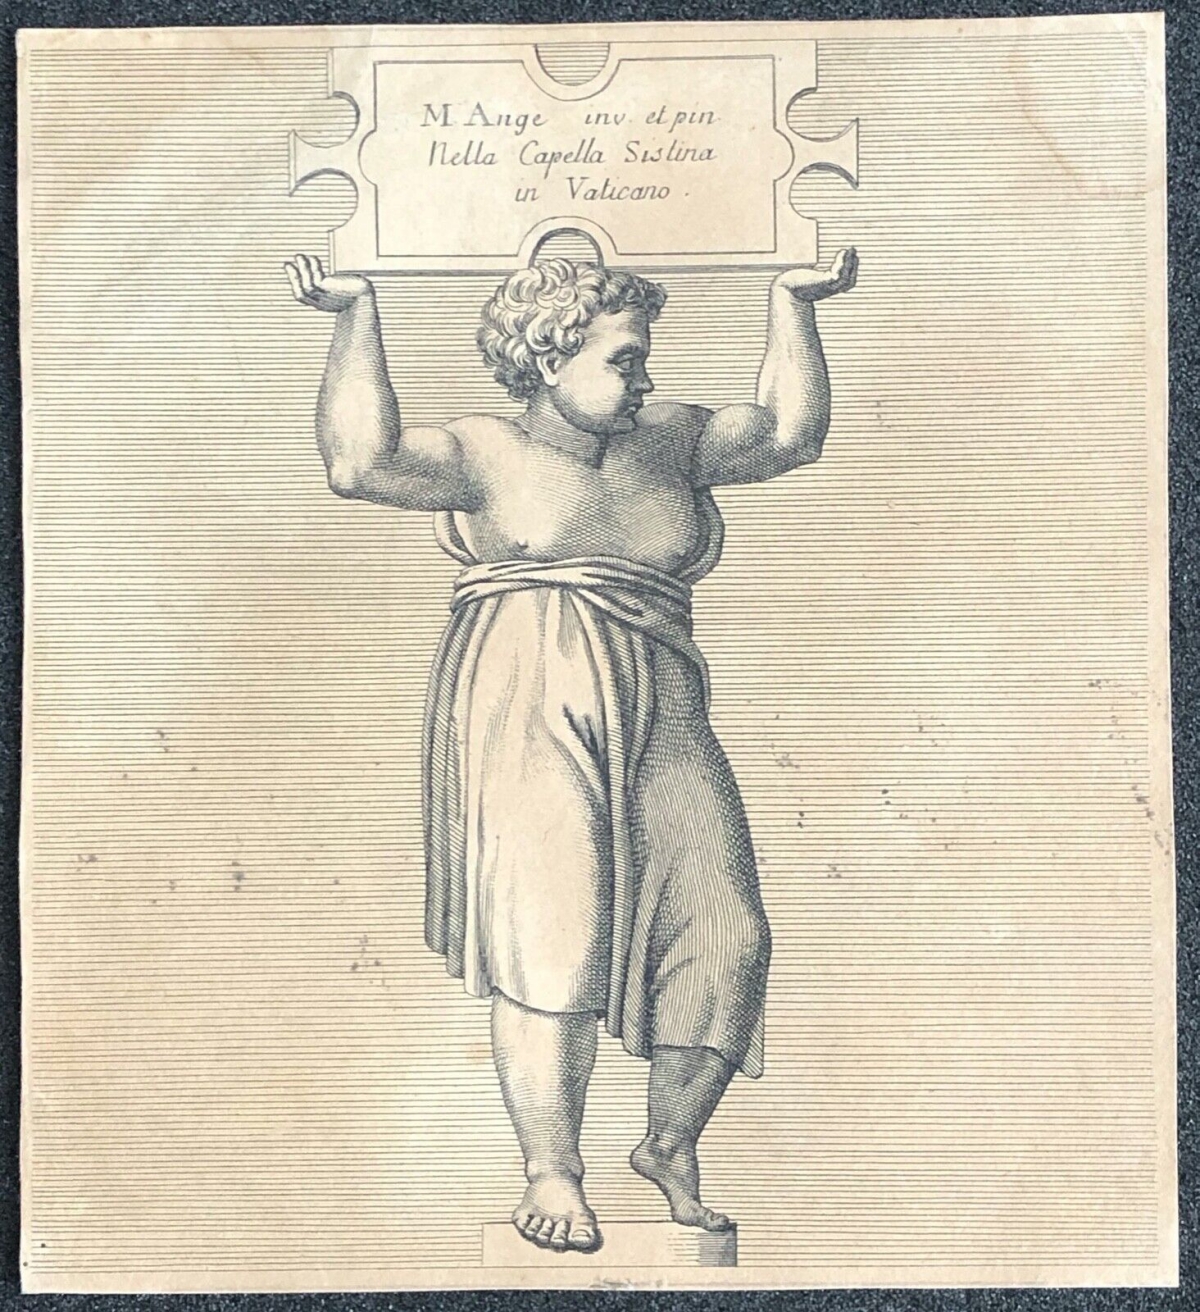 M Ange inv. et pin.
Nella Capella Sistina
in Vaticano.